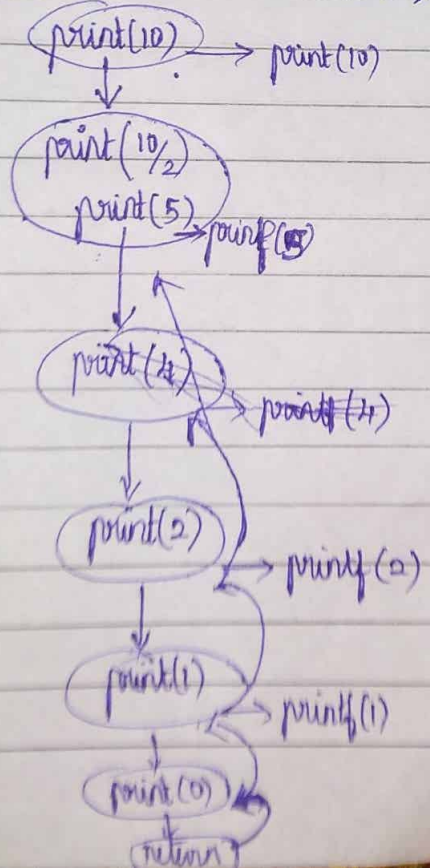 print(10) → print(10)
print(10/2)
print(5) → printf(5)
print(4) → printf(4)
print(2) → printf(2)
print(1) → printf(1)
print(0)
return